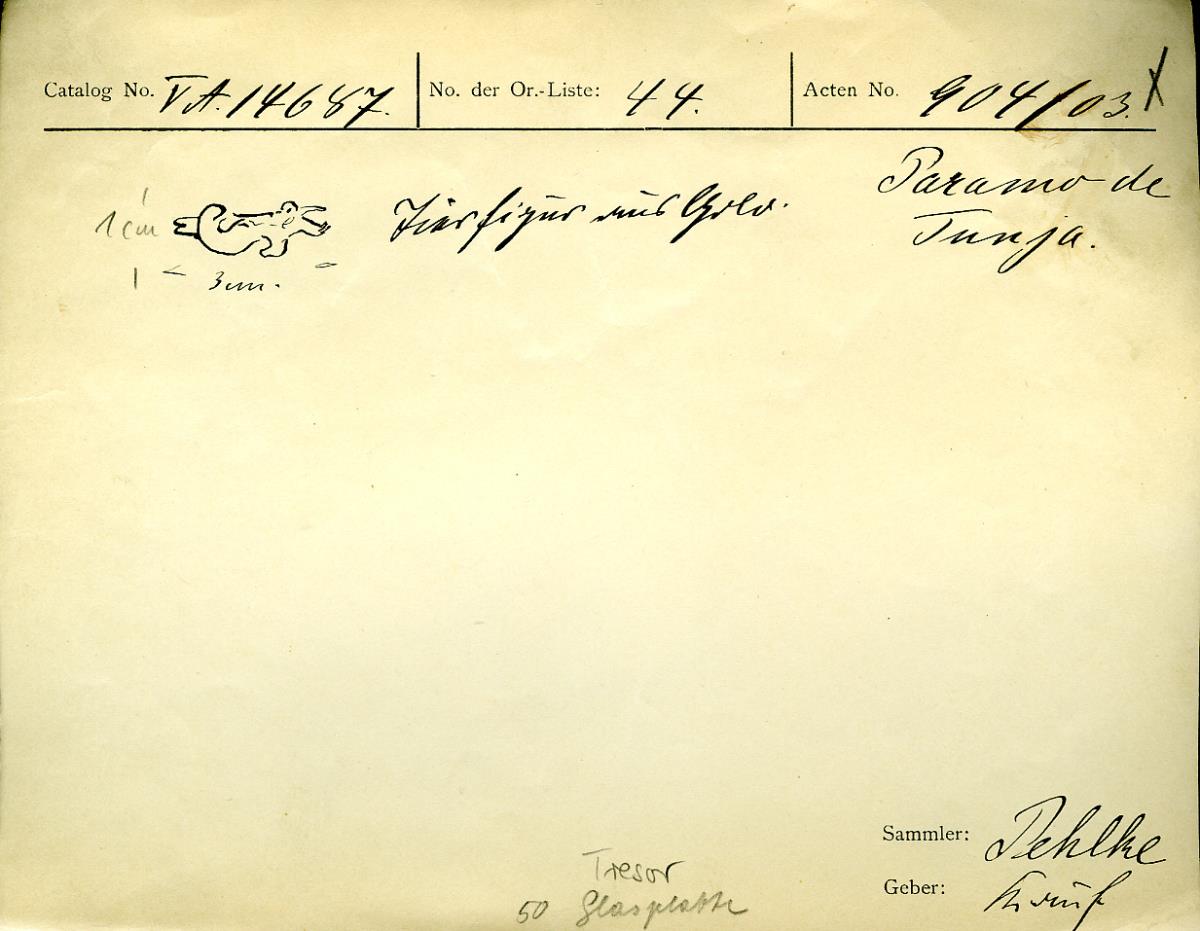 Catalog No. VA. 14687. No. der Or.-Liste: 44. Acten No. 904/03. X
Paramo de
Tunja.
1 cm Tierfigur aus Gold.
3 cm.
Sammler: Pehlke
Geber: Kauf
Tresor
50 Glasplatte